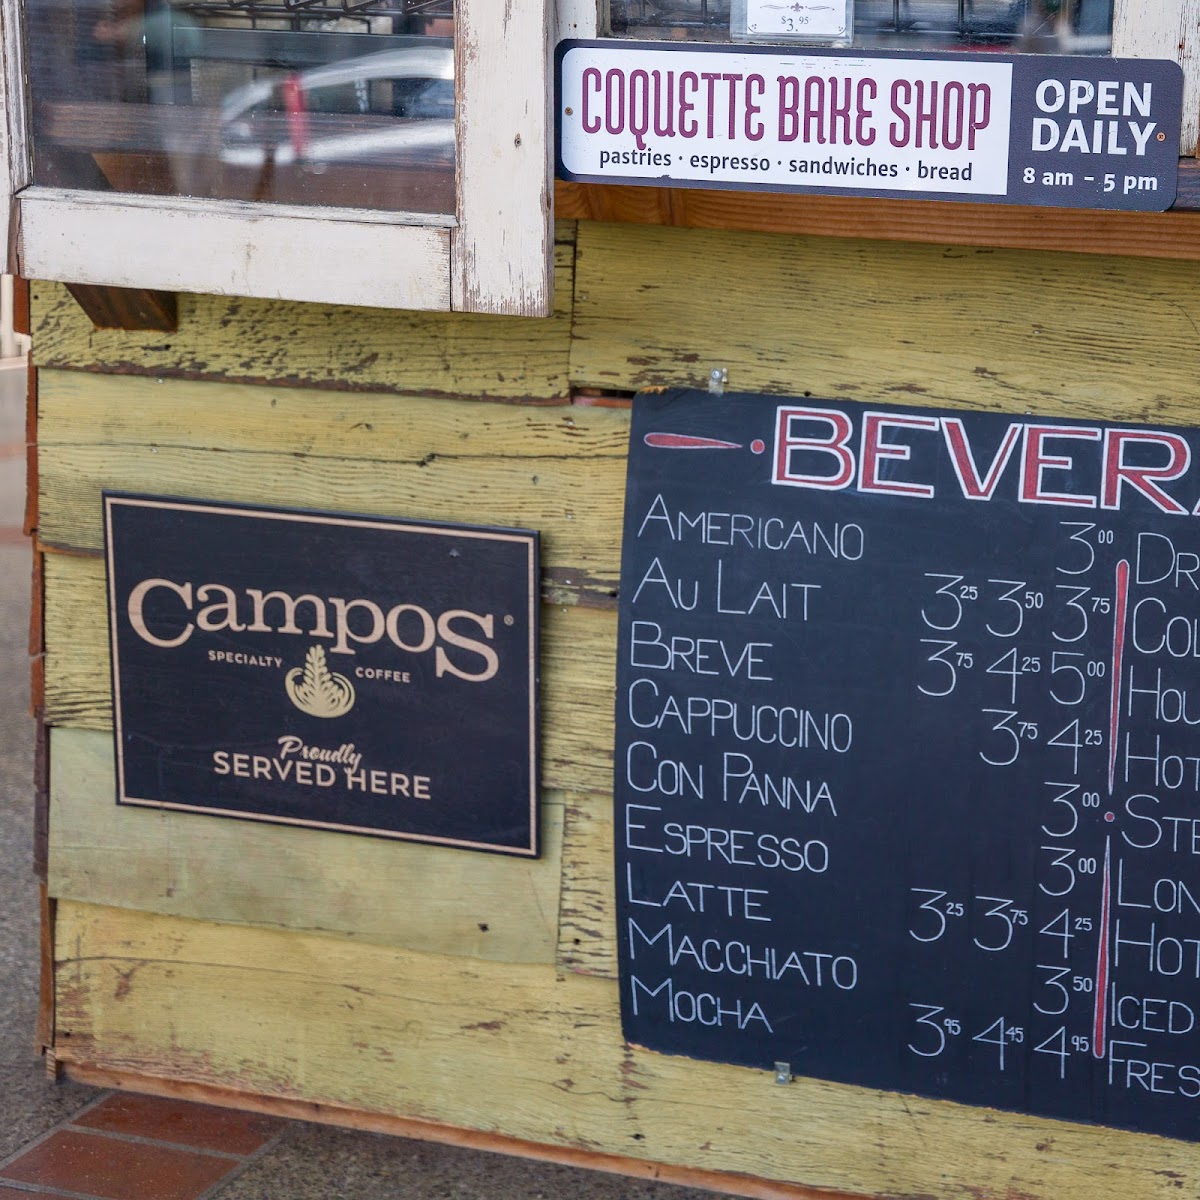 $3.95
COQUETTE BAKE SHOP
pastries · espresso · sandwiches · bread
OPEN
DAILY
8 am - 5 pm
Campos®
SPECIALTY COFFEE
Proudly
SERVED HERE
BEVER
AMERICANO 3.00
AU LAIT 3.25 3.50 3.75
BREVE 3.75 4.25 5.00
CAPPUCCINO 3.75 4.25
CON PANNA 3.00
ESPRESSO 3.00
LATTE 3.25 3.75 4.25
MACCHIATO 3.50
MOCHA 3.95 4.45 4.95
DR
COL
HOU
HOT
STE
LON
HOT
ICED
FRES